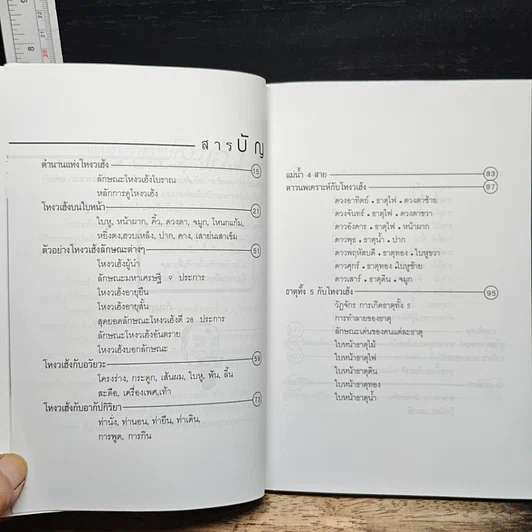 สารบัญ
ตำนานแห่งโหงวเฮ้ง 15
ลักษณะโหงวเฮ้งโบราณ
หลักการดูโหงวเฮ้ง
โหงวเฮ้งบนใบหน้า 21
ใบหู, หน้าผาก, คิ้ว, ดวงตา, จมูก, โหนกแก้ม,
หยิ่งตง,ฮวบเหล็ง, ปาก, คาง, เสาย่นเสาเชิ้ม
ตัวอย่างโหงวเฮ้งลักษณะต่างๆ 51
โหงวเฮ้งผู้นำ
ลักษณะมหาเศรษฐี 9 ประการ
โหงวเฮ้งอายุยืน
โหงวเฮ้งอายุสั้น
สุดยอดลักษณะโหงวเฮ้งดี 28 ประการ
ลักษณะโหงวเฮ้งอันตราย
โหงวเฮ้งบอกลักษณะ
โหงวเฮ้งกับอวัยวะ 59
โครงร่าง, กระดูก, เส้นผม, ใบหู, ฟัน, ลิ้น
สะดือ, เครื่องเพศ,เท้า
โหงวเฮ้งกับอากัปกิริยา 73
ท่านั่ง, ท่านอน, ท่ายืน, ท่าเดิน,
การพูด, การกิน
แม่น้ำ 4 สาย 83
ดาวนพเคราะห์กับโหงวเฮ้ง 87
ดวงอาทิตย์ . ธาตุไฟ . ดวงตาซ้าย
ดวงจันทร์ . ธาตุไฟ . ดวงตาขวา
ดาวอังคาร . ธาตุไฟ . หน้าผาก
ดาวพุธ . ธาตุน้ำ . ปาก
ดาวพฤหัสบดี . ธาตุทอง . ใบหูขวา
ดาวศุกร์ . ธาตุทอง . ใบหูซ้าย
ดาวเสาร์ . ธาตุดิน . จมูก
ธาตุทั้ง 5 กับโหงวเฮ้ง 95
วัฏจักร การเกิดธาตุทั้ง 5
การทำลายของธาตุ
ลักษณะเด่นของคนแต่ละธาตุ
ใบหน้าธาตุไม้
ใบหน้าธาตุไฟ
ใบหน้าธาตุดิน
ใบหน้าธาตุทอง
ใบหน้าธาตุน้ำ